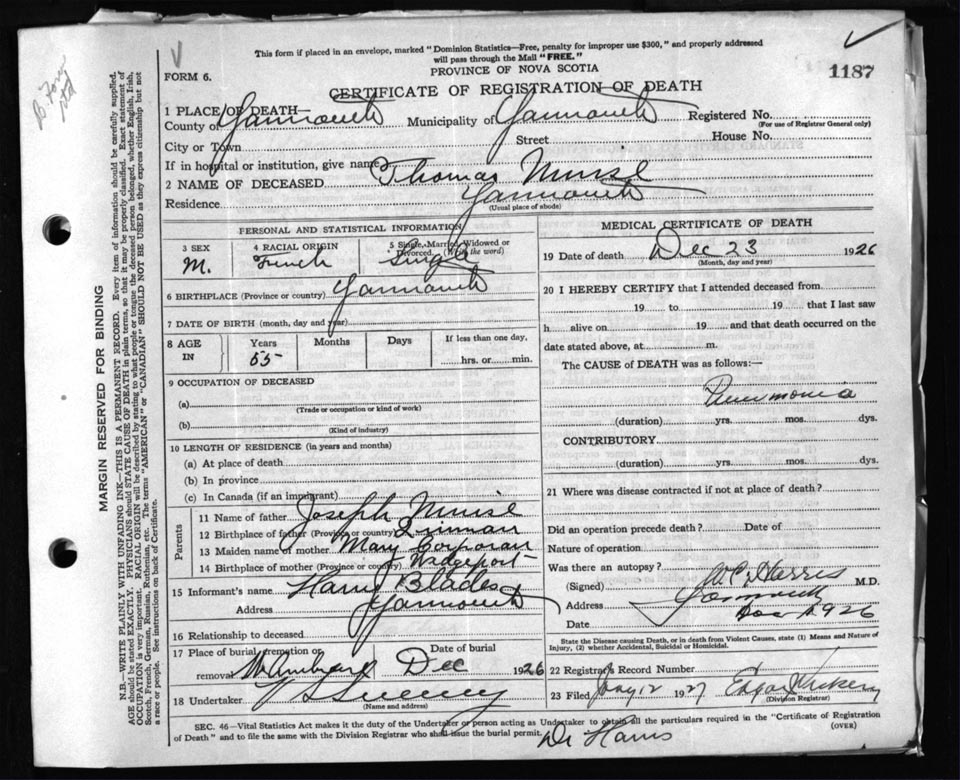 This form if placed in an envelope, marked "Dominion Statistics—Free, penalty for improper use $300," and properly addressed
will pass through the Mail "FREE."
FORM 6.
PROVINCE OF NOVA SCOTIA
1187
CERTIFICATE OF REGISTRATION OF DEATH
1 PLACE OF DEATH—
County of Yarmouth Municipality of Yarmouth Registered No.
(For use of Registrar General only)
City or Town Street House No.
If in hospital or institution, give name
2 NAME OF DECEASED Thomas Muise
Residence Yarmouth
(Usual place of abode)
PERSONAL AND STATISTICAL INFORMATION
3 SEX 4 RACIAL ORIGIN 5 Single, Married, Widowed or
Divorced. (Write the word)
M. French Single
6 BIRTHPLACE (Province or country) Yarmouth
7 DATE OF BIRTH (month, day and year)
8 AGE IN Years Months Days If less than one day,
55 hrs. or min.
9 OCCUPATION OF DECEASED
(a)
(Trade or occupation or kind of work)
(b)
(Kind of industry)
10 LENGTH OF RESIDENCE (in years and months)
(a) At place of death
(b) In province
(c) In Canada (if an immigrant)
Parents
11 Name of father Joseph Muise
12 Birthplace of father (Province or country)
13 Maiden name of mother Mary Corporan
14 Birthplace of mother (Province or country) Wedgeport
15 Informant's name Harry Blades
Address Yarmouth
16 Relationship to deceased
17 Place of burial, cremation or Date of burial
removal Dec 1926
18 Undertaker V S Sweeny
(Name and address)
MEDICAL CERTIFICATE OF DEATH
19 Date of death Dec 23 1926
(Month, day and year)
20 I HEREBY CERTIFY that I attended deceased from
19 to 19 that I last saw
h alive on 19 and that death occurred on the
date stated above, at m.
The CAUSE of DEATH was as follows:—
Pneumonia
(duration) yrs. mos. dys.
CONTRIBUTORY
(duration) yrs. mos. dys.
21 Where was disease contracted if not at place of death?
Did an operation precede death? Date of
Nature of operation
Was there an autopsy?
(Signed) Harris M.D.
Address Yarmouth
Date 1926
State the Disease causing Death, or in death from Violent Causes, state (1) Means and Nature of
Injury, (2) whether Accidental, Suicidal or Homicidal.
22 Registrar's Record Number
23 Filed Jany 12 1927 Edgar
(Division Registrar)
SEC. 46—Vital Statistics Act makes it the duty of the Undertaker or person acting as Undertaker to obtain all the particulars required in the "Certificate of Registration
of Death" and to file the same with the Division Registrar who shall issue the burial permit.
(OVER)
Dr Harris
MARGIN RESERVED FOR BINDING
N.B.—WRITE PLAINLY WITH UNFADING INK—THIS IS A PERMANENT RECORD. Every item of information should be carefully supplied.
AGE should be stated EXACTLY. PHYSICIANS should STATE CAUSE OF DEATH in plain terms, so that it may be properly classified. Exact statement of
OCCUPATION is very important. RACIAL ORIGIN will be described by stating to what people or tongue the deceased person belonged, whether English, Irish,
Scotch, French, German, Russian, Ruthenian, etc. The terms "AMERICAN" or "CANADIAN" SHOULD NOT BE USED as they express citizenship but not
a race or people. See instructions on back of Certificate.